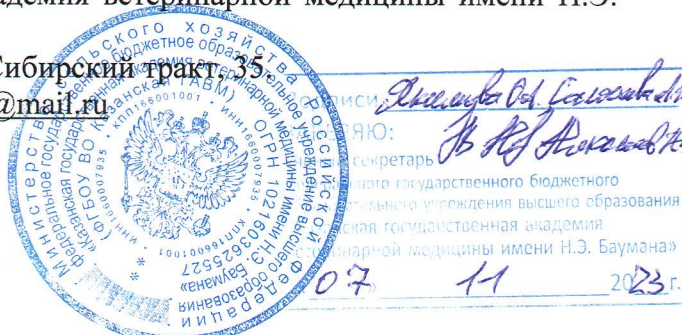 адемия ветеринарной медицины имени Н.Э.
Сибирский тракт, 35.
@mail.ru
Министерство сельского хозяйства Российской Федерации
федеральное государственное бюджетное образовательное учреждение высшего образования
«Казанская государственная академия ветеринарной медицины имени Н.Э. Баумана»
(ФГБОУ ВО Казанская ГАВМ) * ОГРН 1021603625527
* КПП 166001001 * ИНН 1660007935 * КПП 166001001 * ИНН 1660007935
писи
ЯЮ:
секретарь
государственного бюджетного
учреждения высшего образования
государственная академия
медицины имени Н.Э. Баумана»
07» 11 2023 г.